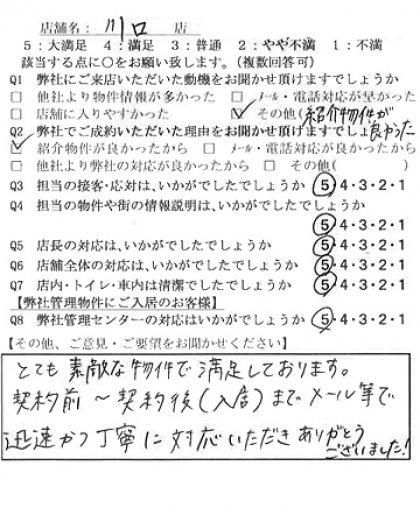 店舗名： 川口 店
5：大満足 4：満足 3：普通 2：やや不満 1：不満
該当する点に○をお願い致します。（複数回答可）
Q1 弊社にご来店いただいた動機をお聞かせ頂けますでしょうか
□ 他社より物件情報が多かった □ メール・電話対応が早かった
□ 店舗に入りやすかった ☑ その他（紹介物件が良かった
Q2 弊社でご成約いただいた理由をお聞かせ頂けますでしょうか
☑ 紹介物件が良かったから □ メール・電話対応が良かったから
□ 他社より弊社の対応が良かったから □ その他（ ）
Q3 担当の接客・応対は、いかがでしたでしょうか ⑤・4・3・2・1
Q4 担当の物件や街の情報説明は、いかがでしたでしょうか
⑤・4・3・2・1
Q5 店長の対応は、いかがでしたでしょうか ⑤・4・3・2・1
Q6 店舗全体の対応は、いかがでしたでしょうか ⑤・4・3・2・1
Q7 店内・トイレ・車内は清潔でしたでしょうか ⑤・4・3・2・1
【弊社管理物件にご入居のお客様】
Q8 弊社管理センターの対応はいかがでしょうか ⑤・4・3・2・1
【その他、ご意見・ご要望をお聞かせください】
とても素敵な物件で満足しております。
契約前～契約後（入居）までメール等で
迅速かつ丁寧に対応いただきありがとうございました！